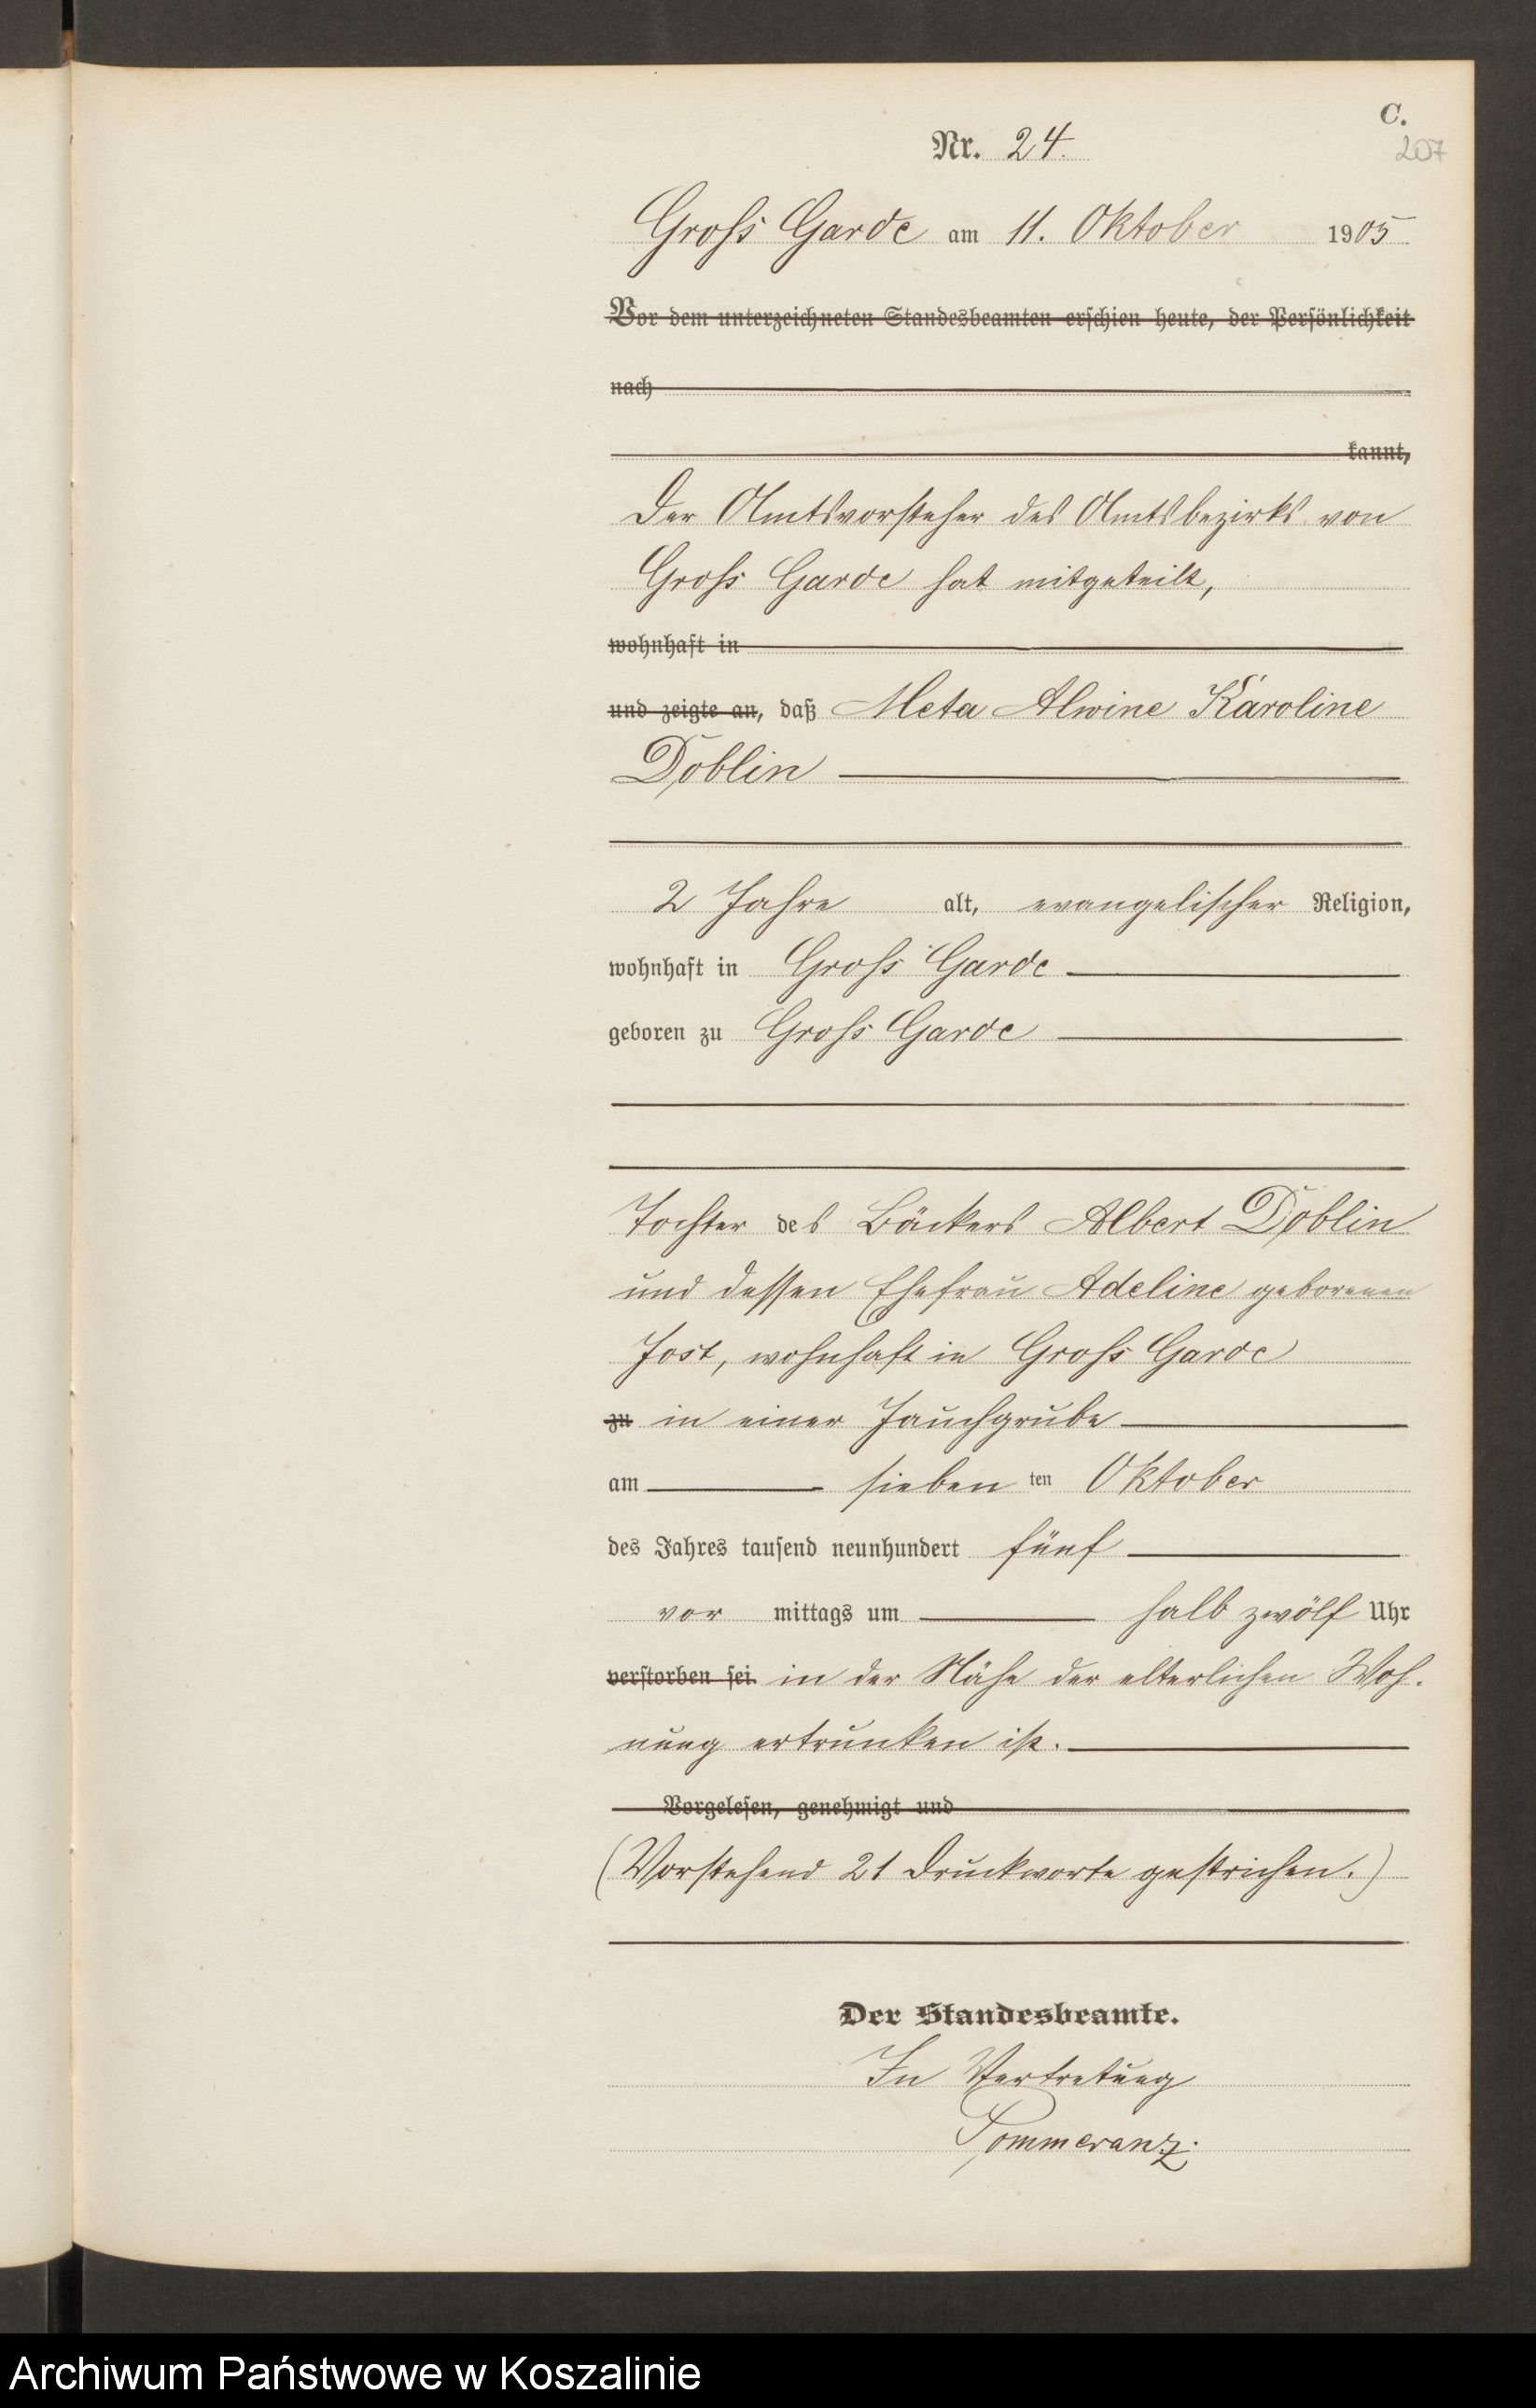 C.
207
Nr. 24.
Gross Garde am 11. Oktober 1905
Vor dem unterzeichneten Standesbeamten erschien heute, der Persönlichkeit
nach
kannt,
Der Amtsvorsteher des Amtsbezirks von
Gross Garde hat mitgeteilt,
wohnhaft in
und zeigte an, daß Meta Alwine Karoline
Doblin
2 Jahre alt, evangelischer Religion,
wohnhaft in Gross Garde
geboren zu Gross Garde
Tochter des Bäckers Albert Doblin
und dessen Ehefrau Adeline geborenen
Jost, wohnhaft in Gross Garde
zu in einer Jauchgrube
am sieben ten Oktober
des Jahres tausend neunhundert fünf
vor mittags um halb zwölf Uhr
verstorben sei. in der Nähe der elterlichen Woh-
nung ertrunken ist.
Vorgelesen, genehmigt und
(Vorstehend 21 Druckworte gestrichen.)
Der Standesbeamte.
In Vertretung
Pommeranz.
Archiwum Państwowe w Koszalinie